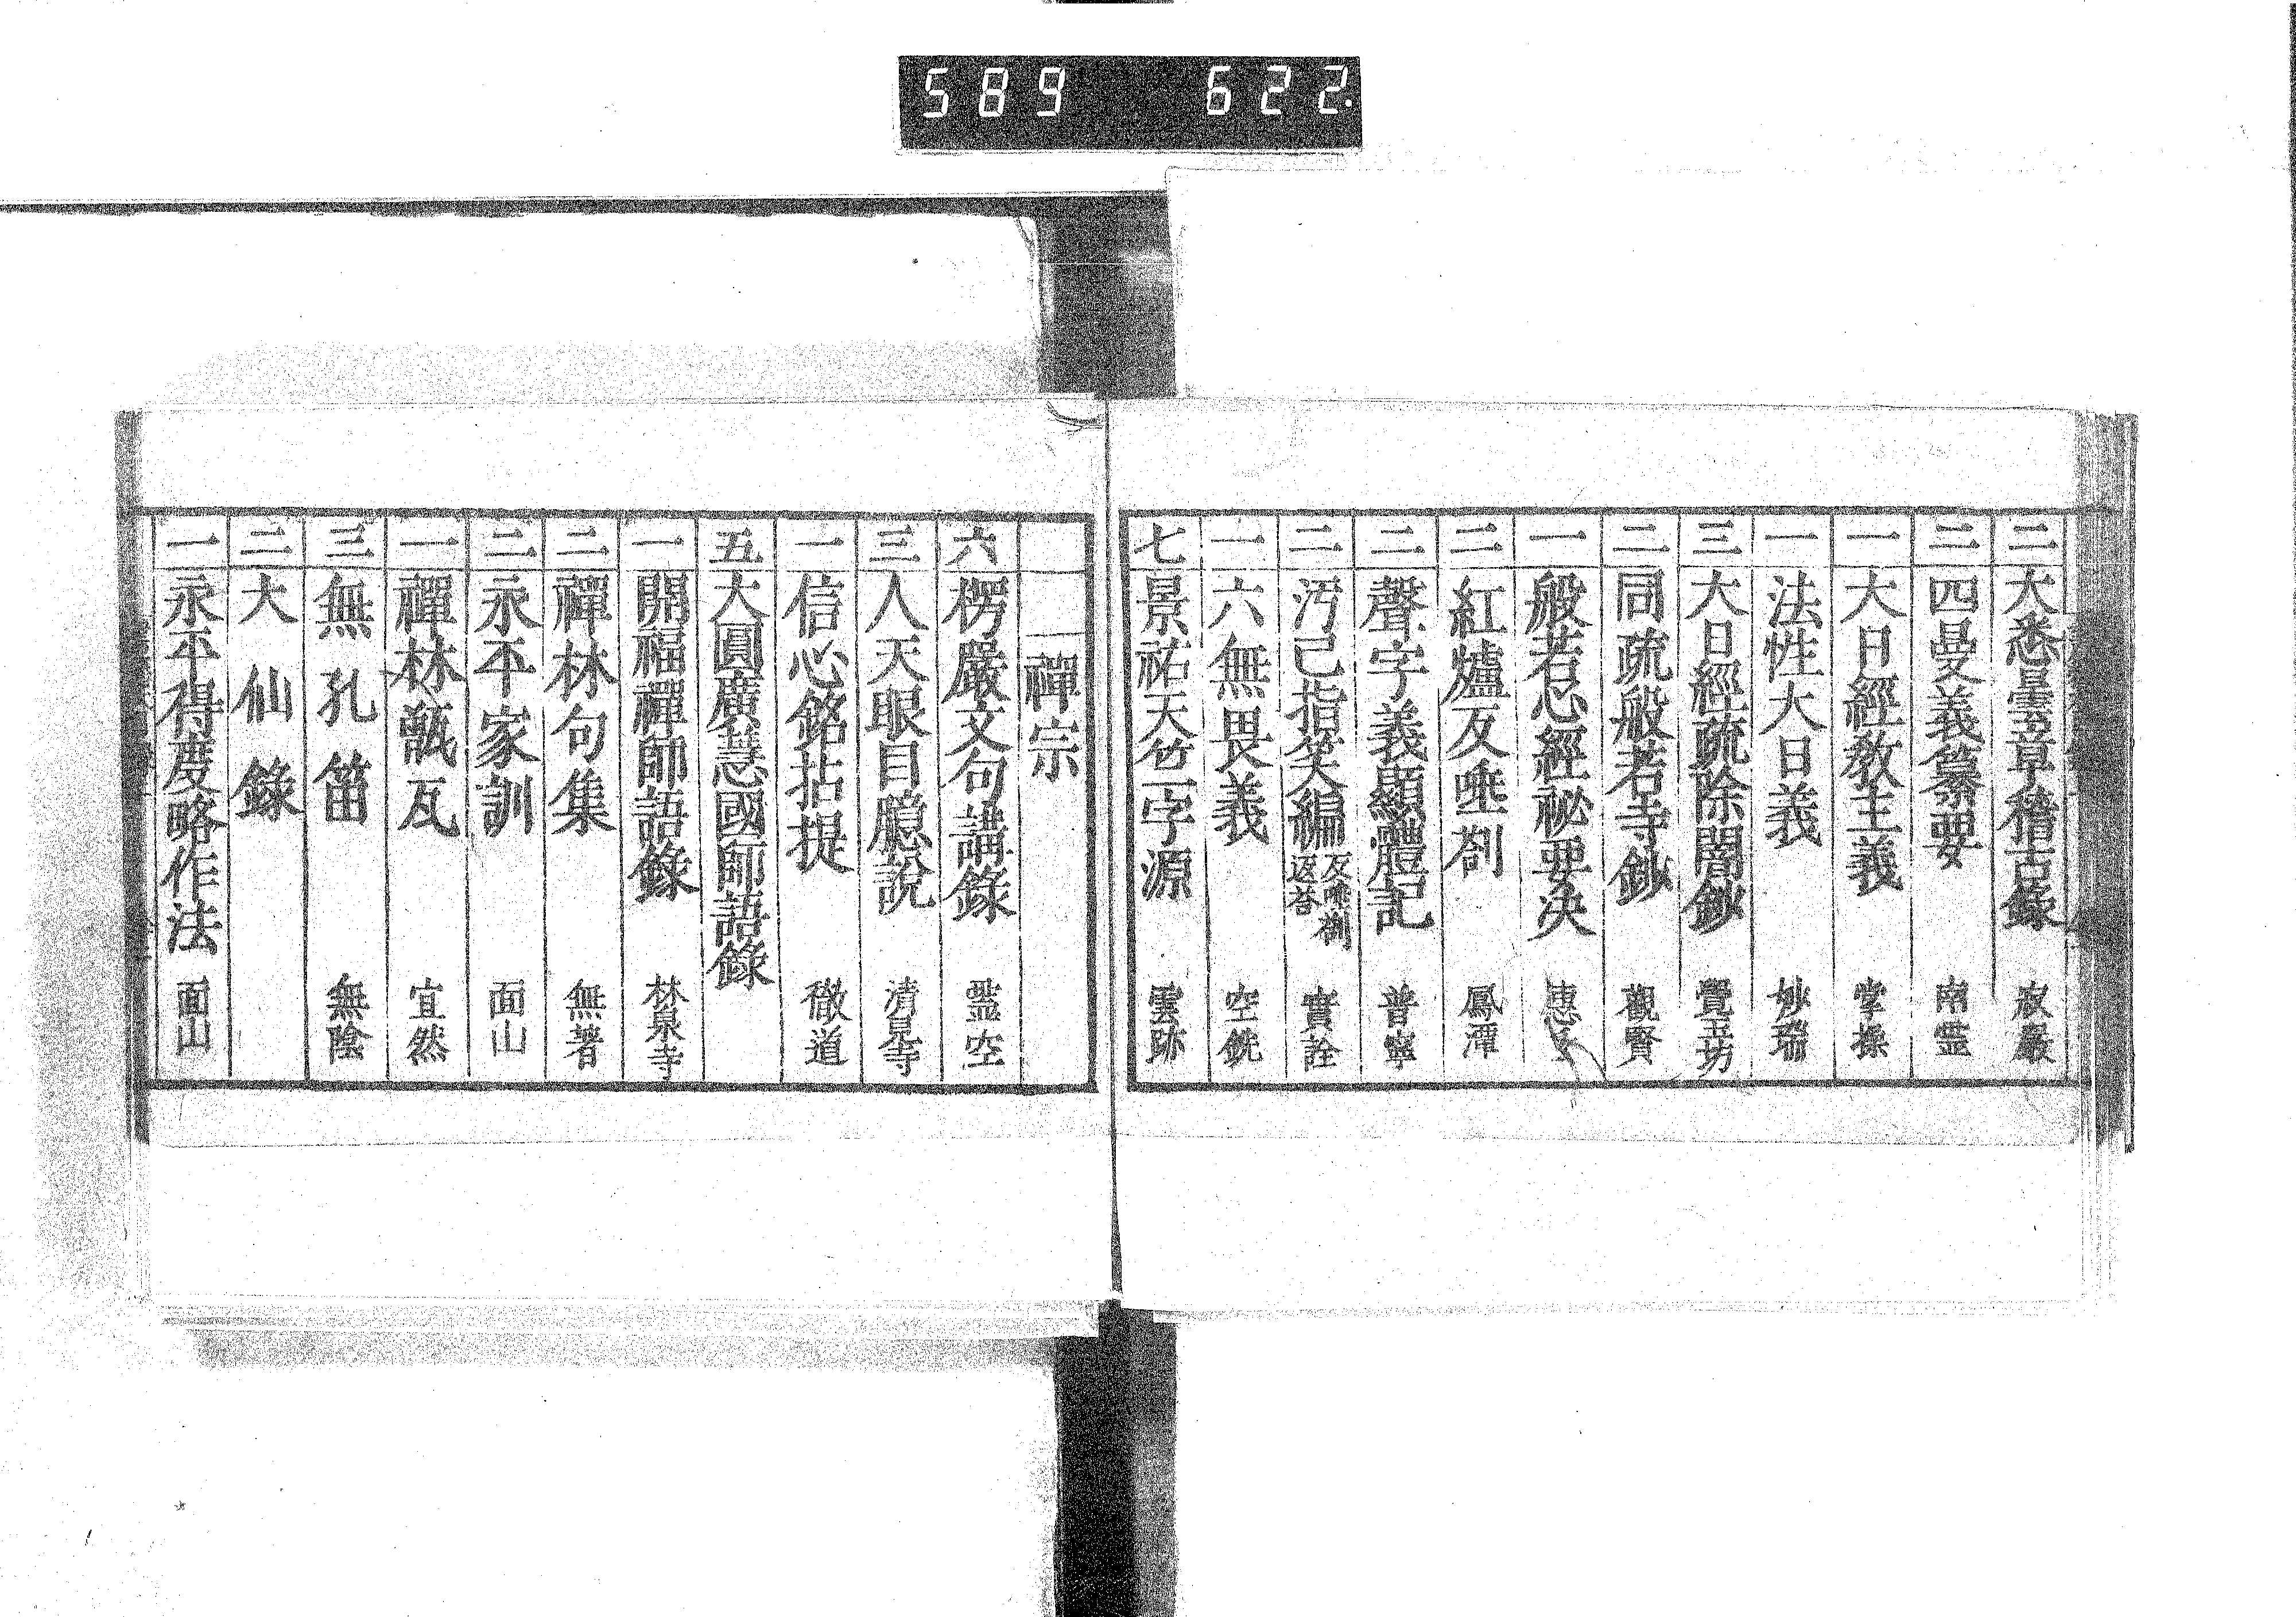 589 622.
二 大悉曇章稽古錄 寂嚴
二 四曼義纂要 南霊
一 大日經教主義 掌操
一 法性大日義 妙瑞
三 大日經疏除闇鈔 覺五坊
二 同疏般若寺鈔 觀賢
一 般若心經祕要决 惠
二 紅爐反唾剳 鳳潭
二 聲字義顯體記 普寧
二 汚己指笑編 反唾剳返答 實詮
一 六無畏義 空銑
七 景祐天竺字源 雲跡
禪宗
六 楞嚴文句講錄 霊空
三 人天眼目臆說 清見寺
一 信心銘拈提 徹道
五 大圓廣慧國師語錄
一 開福禪師語錄 林泉寺
二 禪林句集 無著
二 永平家訓 面山
一 禪林甎瓦 宜然
三 無孔笛 無陰
二 大仙錄
一 永平得度略作法 面山